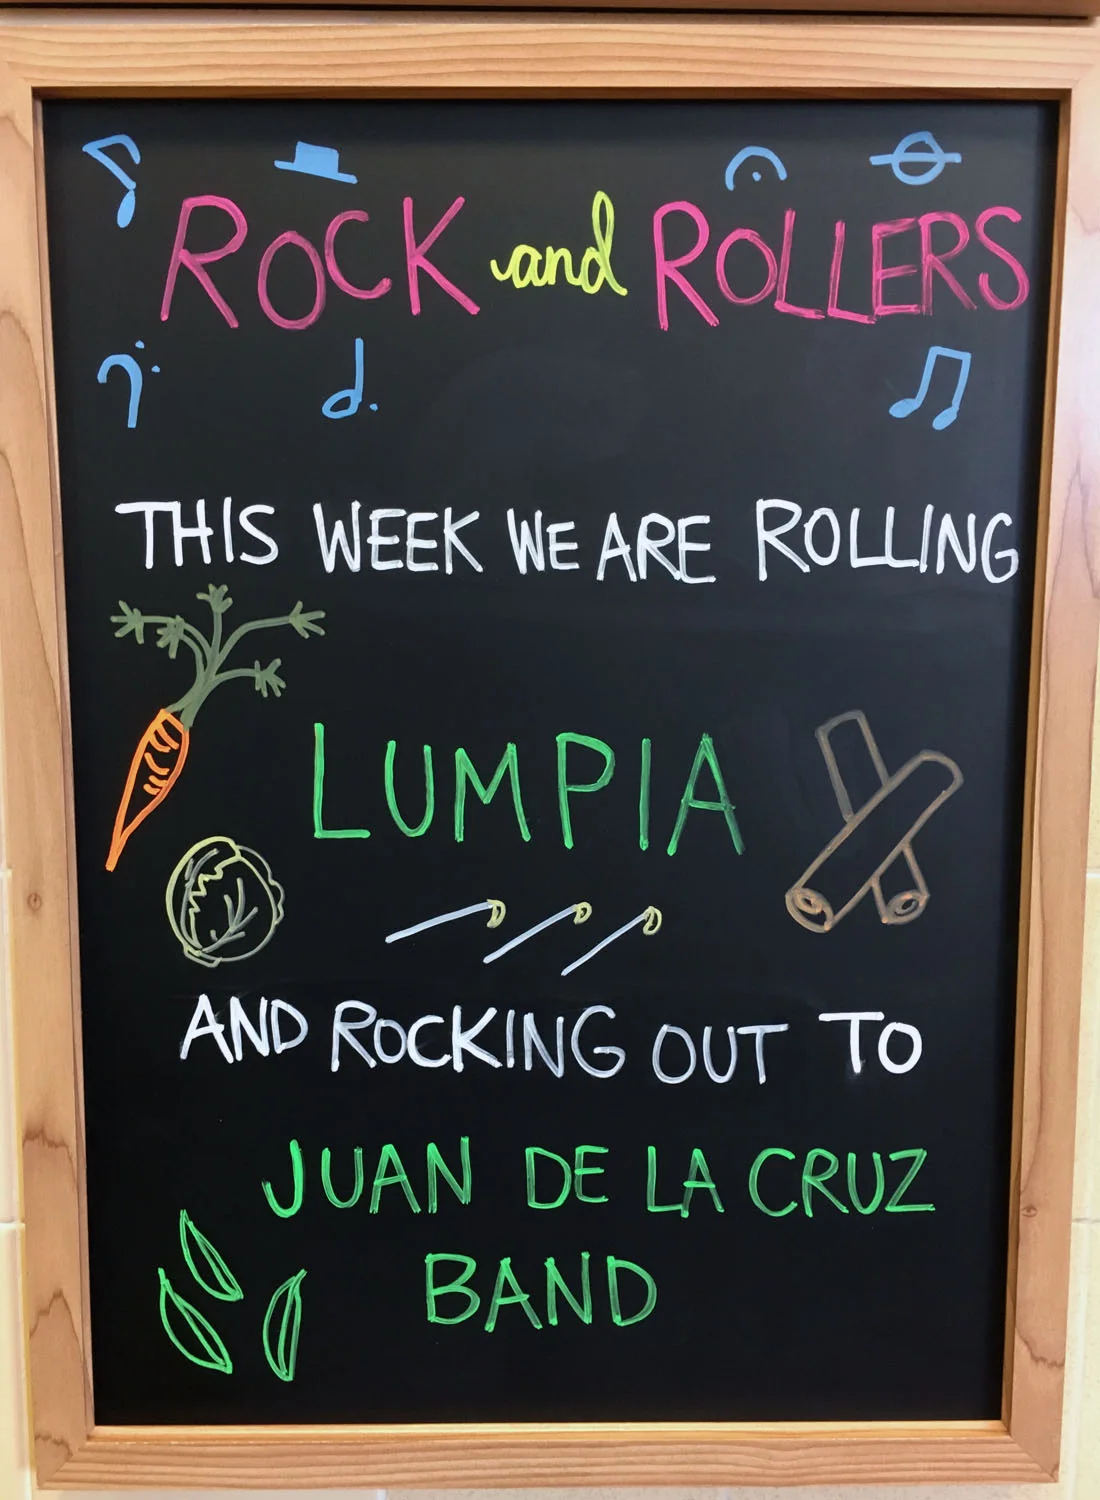 ROCK and ROLLERS
THIS WEEK WE ARE ROLLING
LUMPIA
AND ROCKING OUT TO
JUAN DE LA CRUZ
BAND